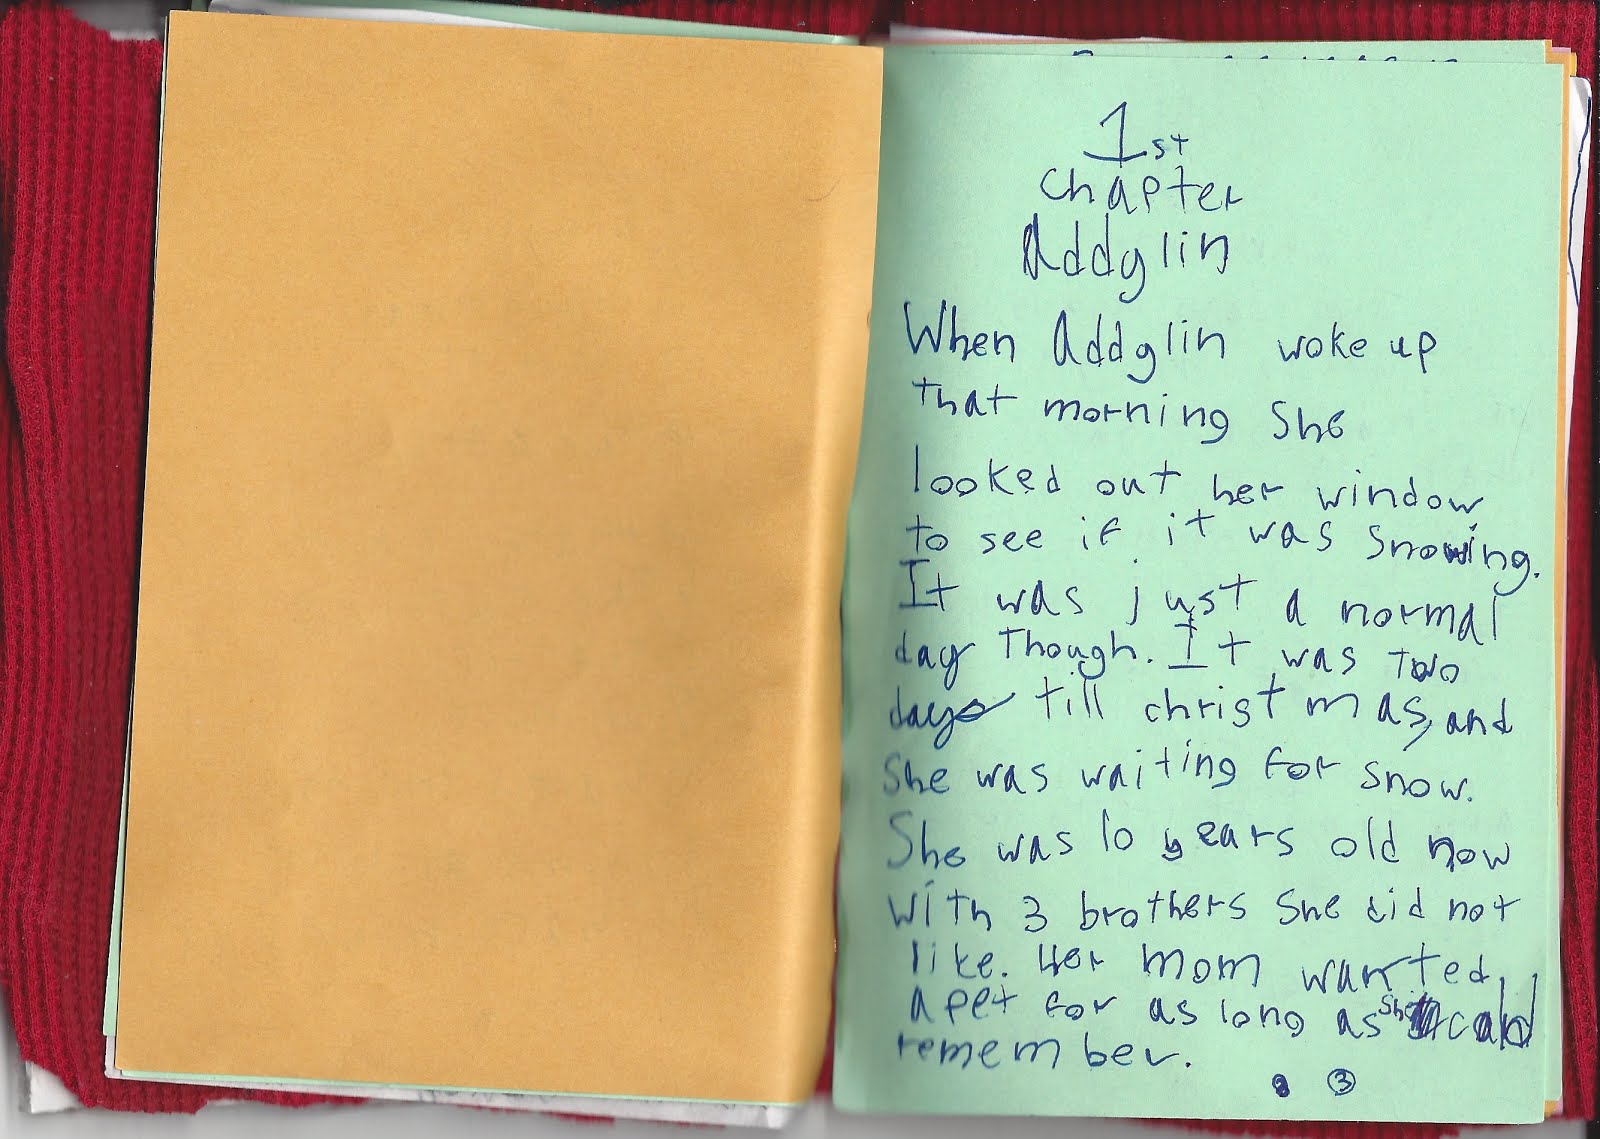 1st
chapter
Addglin
When Addglin woke up
that morning She
looked out her window
to see if it was snowing.
It was just a normal
day Though. It was Two
days till christmas, and
She was waiting for snow.
She was 10 years old now
with 3 brothers She did not
like. Her mom wanted
a pet for as long as she could
remember.
3